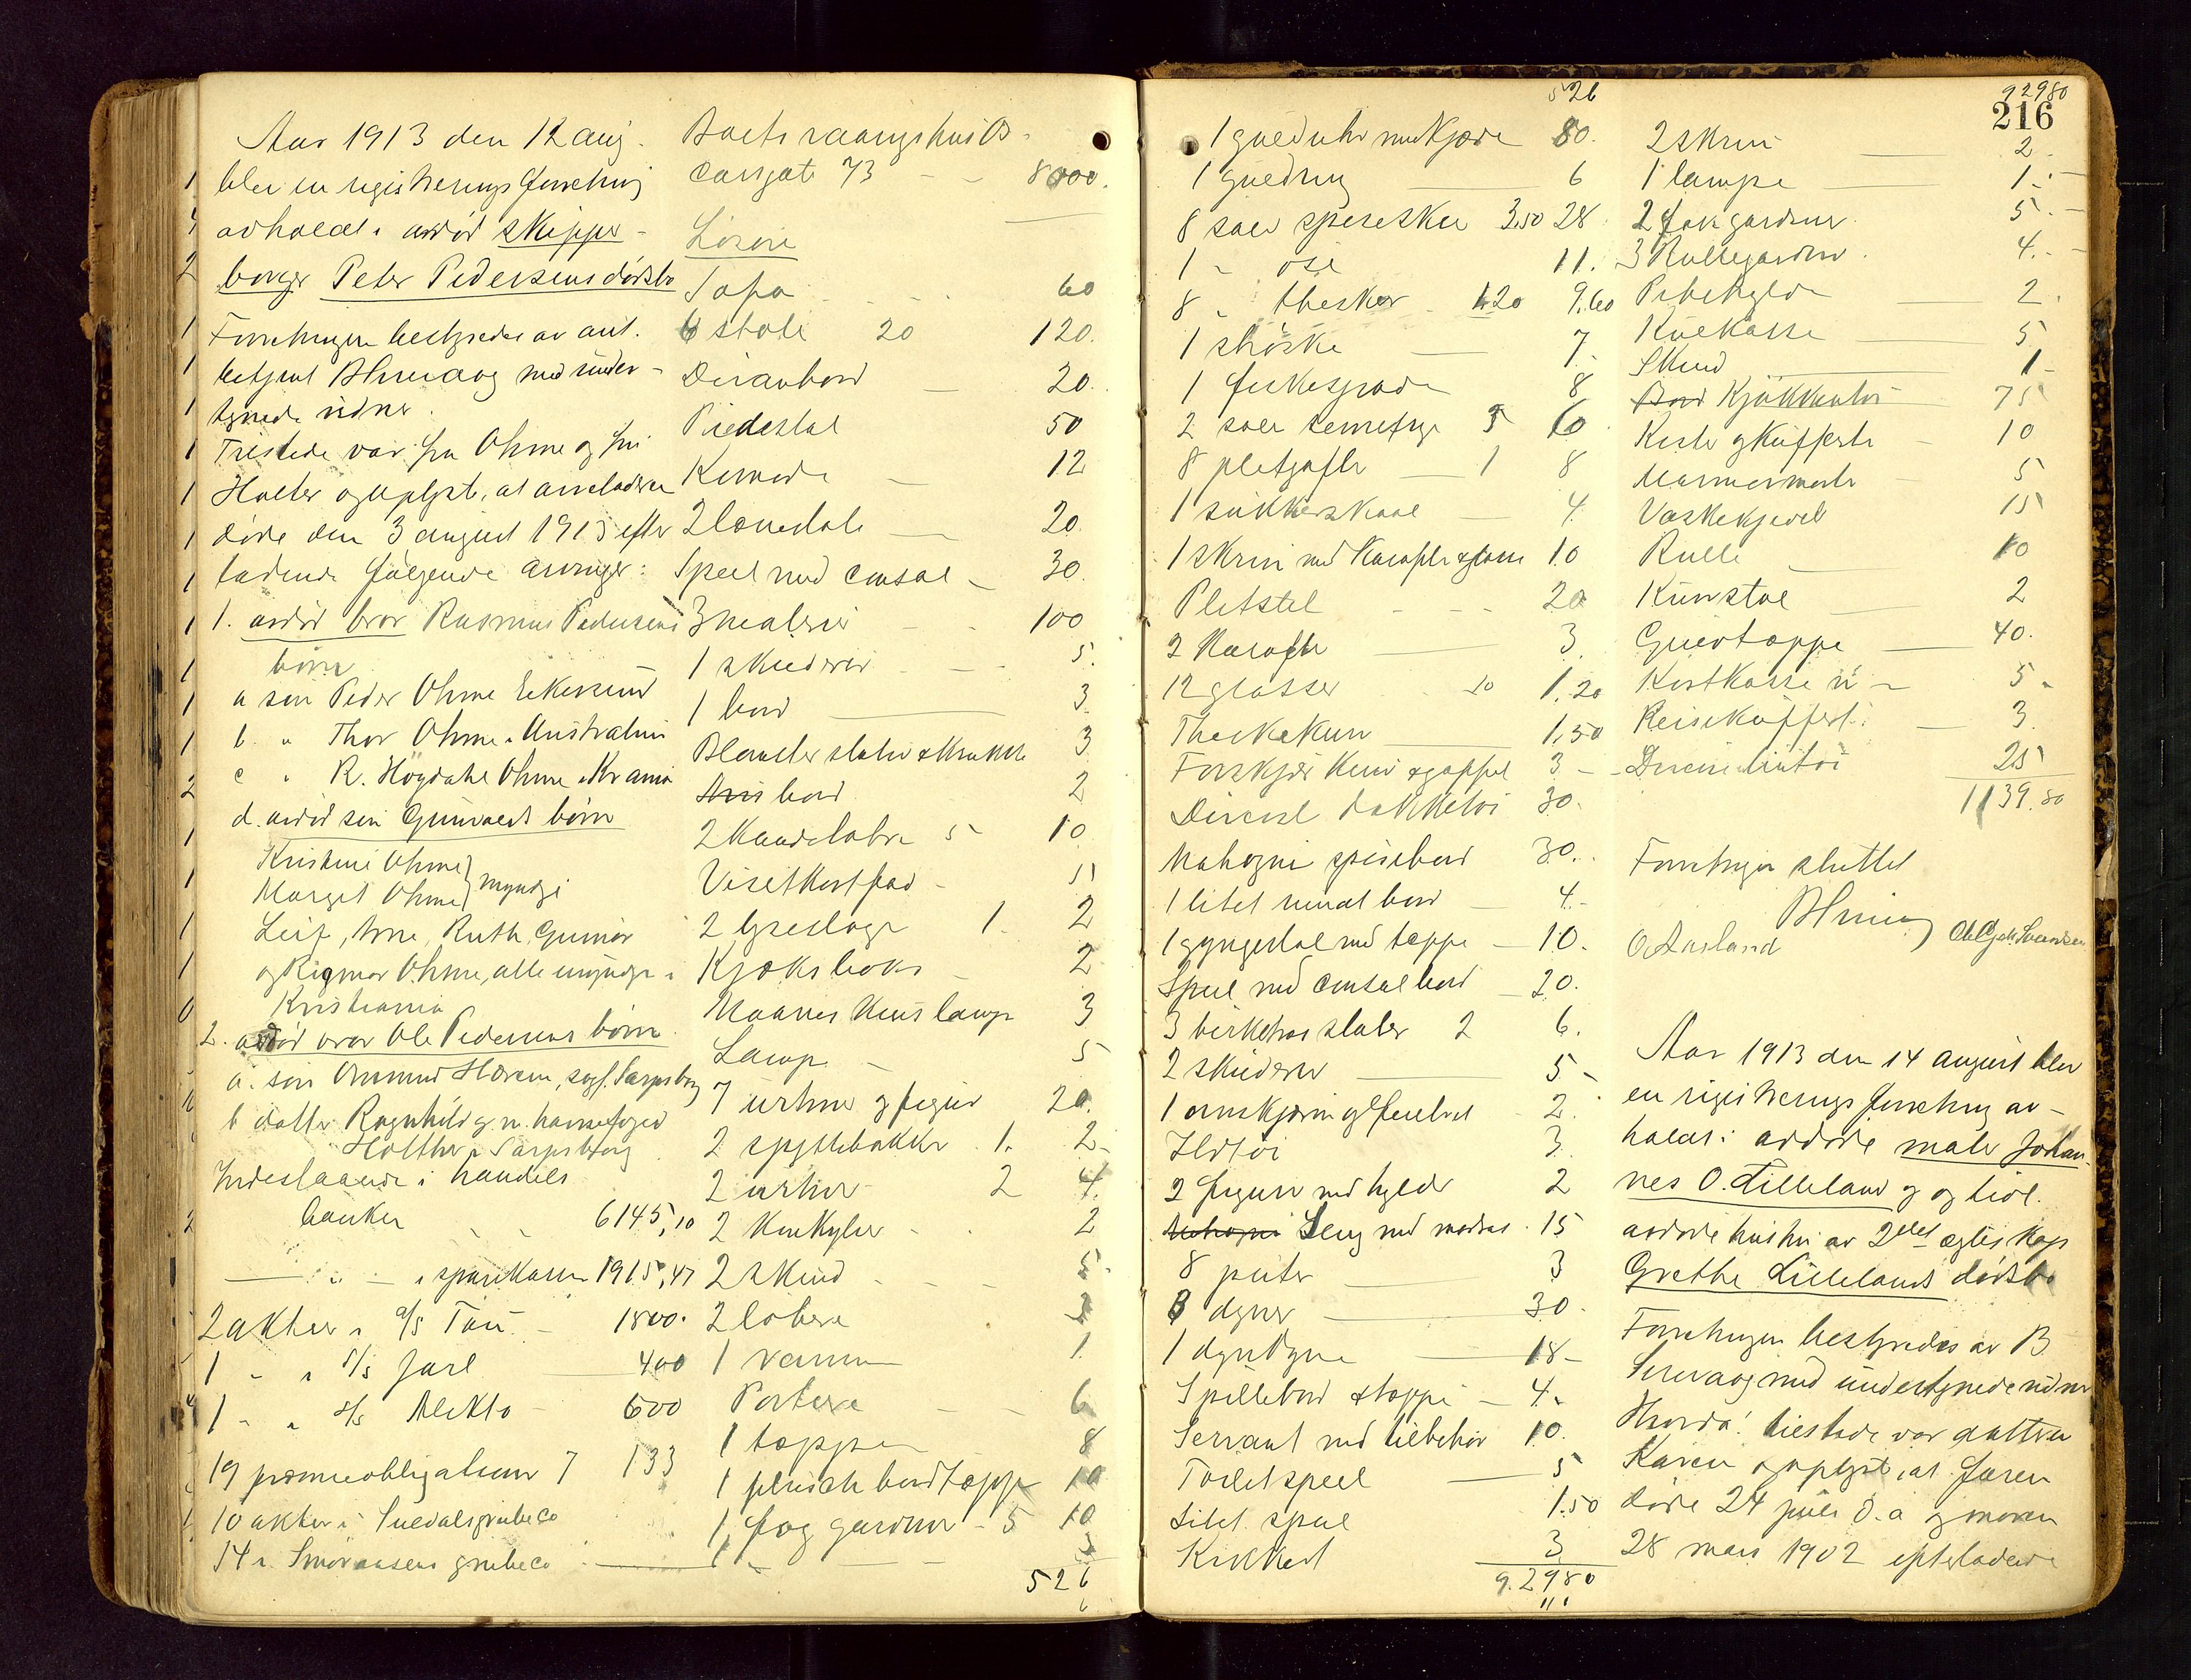 Aar 1913 den 12 aug.
blev en registreringsforretning
avholdt i avdød skipper
borger Peter Pedersens dødsbo
Forretningen bestyredes av aut.
betjent B Sirevaag med under-
tegnede vidner.
Tilstede var fru Ohme og fru
Holter og oplyste, at avdøde
døde den 3 august 1913 efter
ladende følgende arvinger:
1. avdød bror Rasmus Pedersens
børn
a søn Peder Ohme Ekersund
b. " Thor Ohme i Australien
c " R. Høgdahl Ohme i Kr.ania
d. avdød søn Gunvalds børn
Kristine Ohme
Margit Ohme } myndige
Leif, Arne, Ruth, Gunnar
og Rigmor Ohme, alle umyndige i
Kristiania
2. avdød bror Ole Pedersens børn
a. søn Ommund Hovem, sogf. Sarpsborg
b datter Ragnhild g. m.
Holther i Sarpsborg
Indestaaende i handels
banken 6145,10
— " — i sparekassen 1915,47
2 aktier i A/S Tou 1800.
1 " i S/S Jarl 400
1 " " S/S Alekto 600
19 præmieobligationer 7 133
10 aktier i grubeco
14 i grubeco
Boets vaaningshus Ø.
gate 73 8000.
Løsøre
Sofa 60
6 stole 20 120.
Divanbord 20.
Piedestal 50
Komode 12
2 lænestole 20.
Speil med consol 30.
3 malerier 100
1 skilderi 5.
1 bord 3.
Blomsterstativ & krukke 3
bord 2
2 Kandelabre 5 10
Visitkortfad 11
2 lysestager 1. 2
Kjæksboks 2
Lampe 5
1 urhus og figur 20.
2 spyttebakker 1. 2.
2 urtier 2 4.
2 Konkylier 2
2 skind 5.
2 løbere
1 1.
Portiere 6
1 tæppe 8
1 plusch bordtæppe 10
1 fag gardiner 5 10
1 "
526
526
1 gulduhr med kjæde 80.
1 guldring 6
8 sølv spiseskeer 3.50 28
1 " øse 11.
8 " theskeer 1.20 9.60
1 strøske 7.
1 fiskespade 8
2 sølv 3 60
8 pletgafler 1 8
1 sukkerskaal 4.
1 skrin med Karafler & glasse 10
Pletstel 20
2 Karafler 3.
12 glasser 10 1.20
1.50
Forskjær kniv & gaffel 3
Diverse dækketøi 30.
Mahogni spisebord 30.
1 litet rundt bord 4.
1 gyngestol med tæppe 10.
Speil med consolbord 20.
3 birketræs stoler 2 6.
2 skilderier 5
1 2.
Ildtøi 3
2 figurer med hylder 2
Seng med madras 15
8 puter 3
8 dyner 30.
1 18
Spillebord & tæppe 4.
Servant med tilbehør 10.
Toiletspeil 5
Litet speil 1.50
Kikkert 3
929 80
92980
216
2 skrin 2.
1 lampe 1.
2 fag gardiner 5.
3 Rullegardin 4.
Pibehylde 2.
Kulkasse 5.
Skind 1.
Kjøkkentøi 75
Kister & Kufferter 10
Marmormorter 5
Vaskekjedel 15
Rulle 10
Kurvstol 2
Gulvtæppe 40.
5.
Reisekuffert 3.
Diverse lintøi 25
1139.80
Forretningen sluttet
B Sirevaag
O. Aasland
Aar 1913 den 14 august blev
en registreringsforretning av-
holdt i avdøde maler Johan-
nes O. Lilleland og og tidl.
avdøde hustru av 2det egteskap
Grethe Lillelands dødsbo
Forretningen bestyredes av B
Sirevaag med undertegnede vidner
tilstede var datteren
Karen og oplyste, at faren
døde 24 juli d. a og moren
28 mars 1902 efterladende